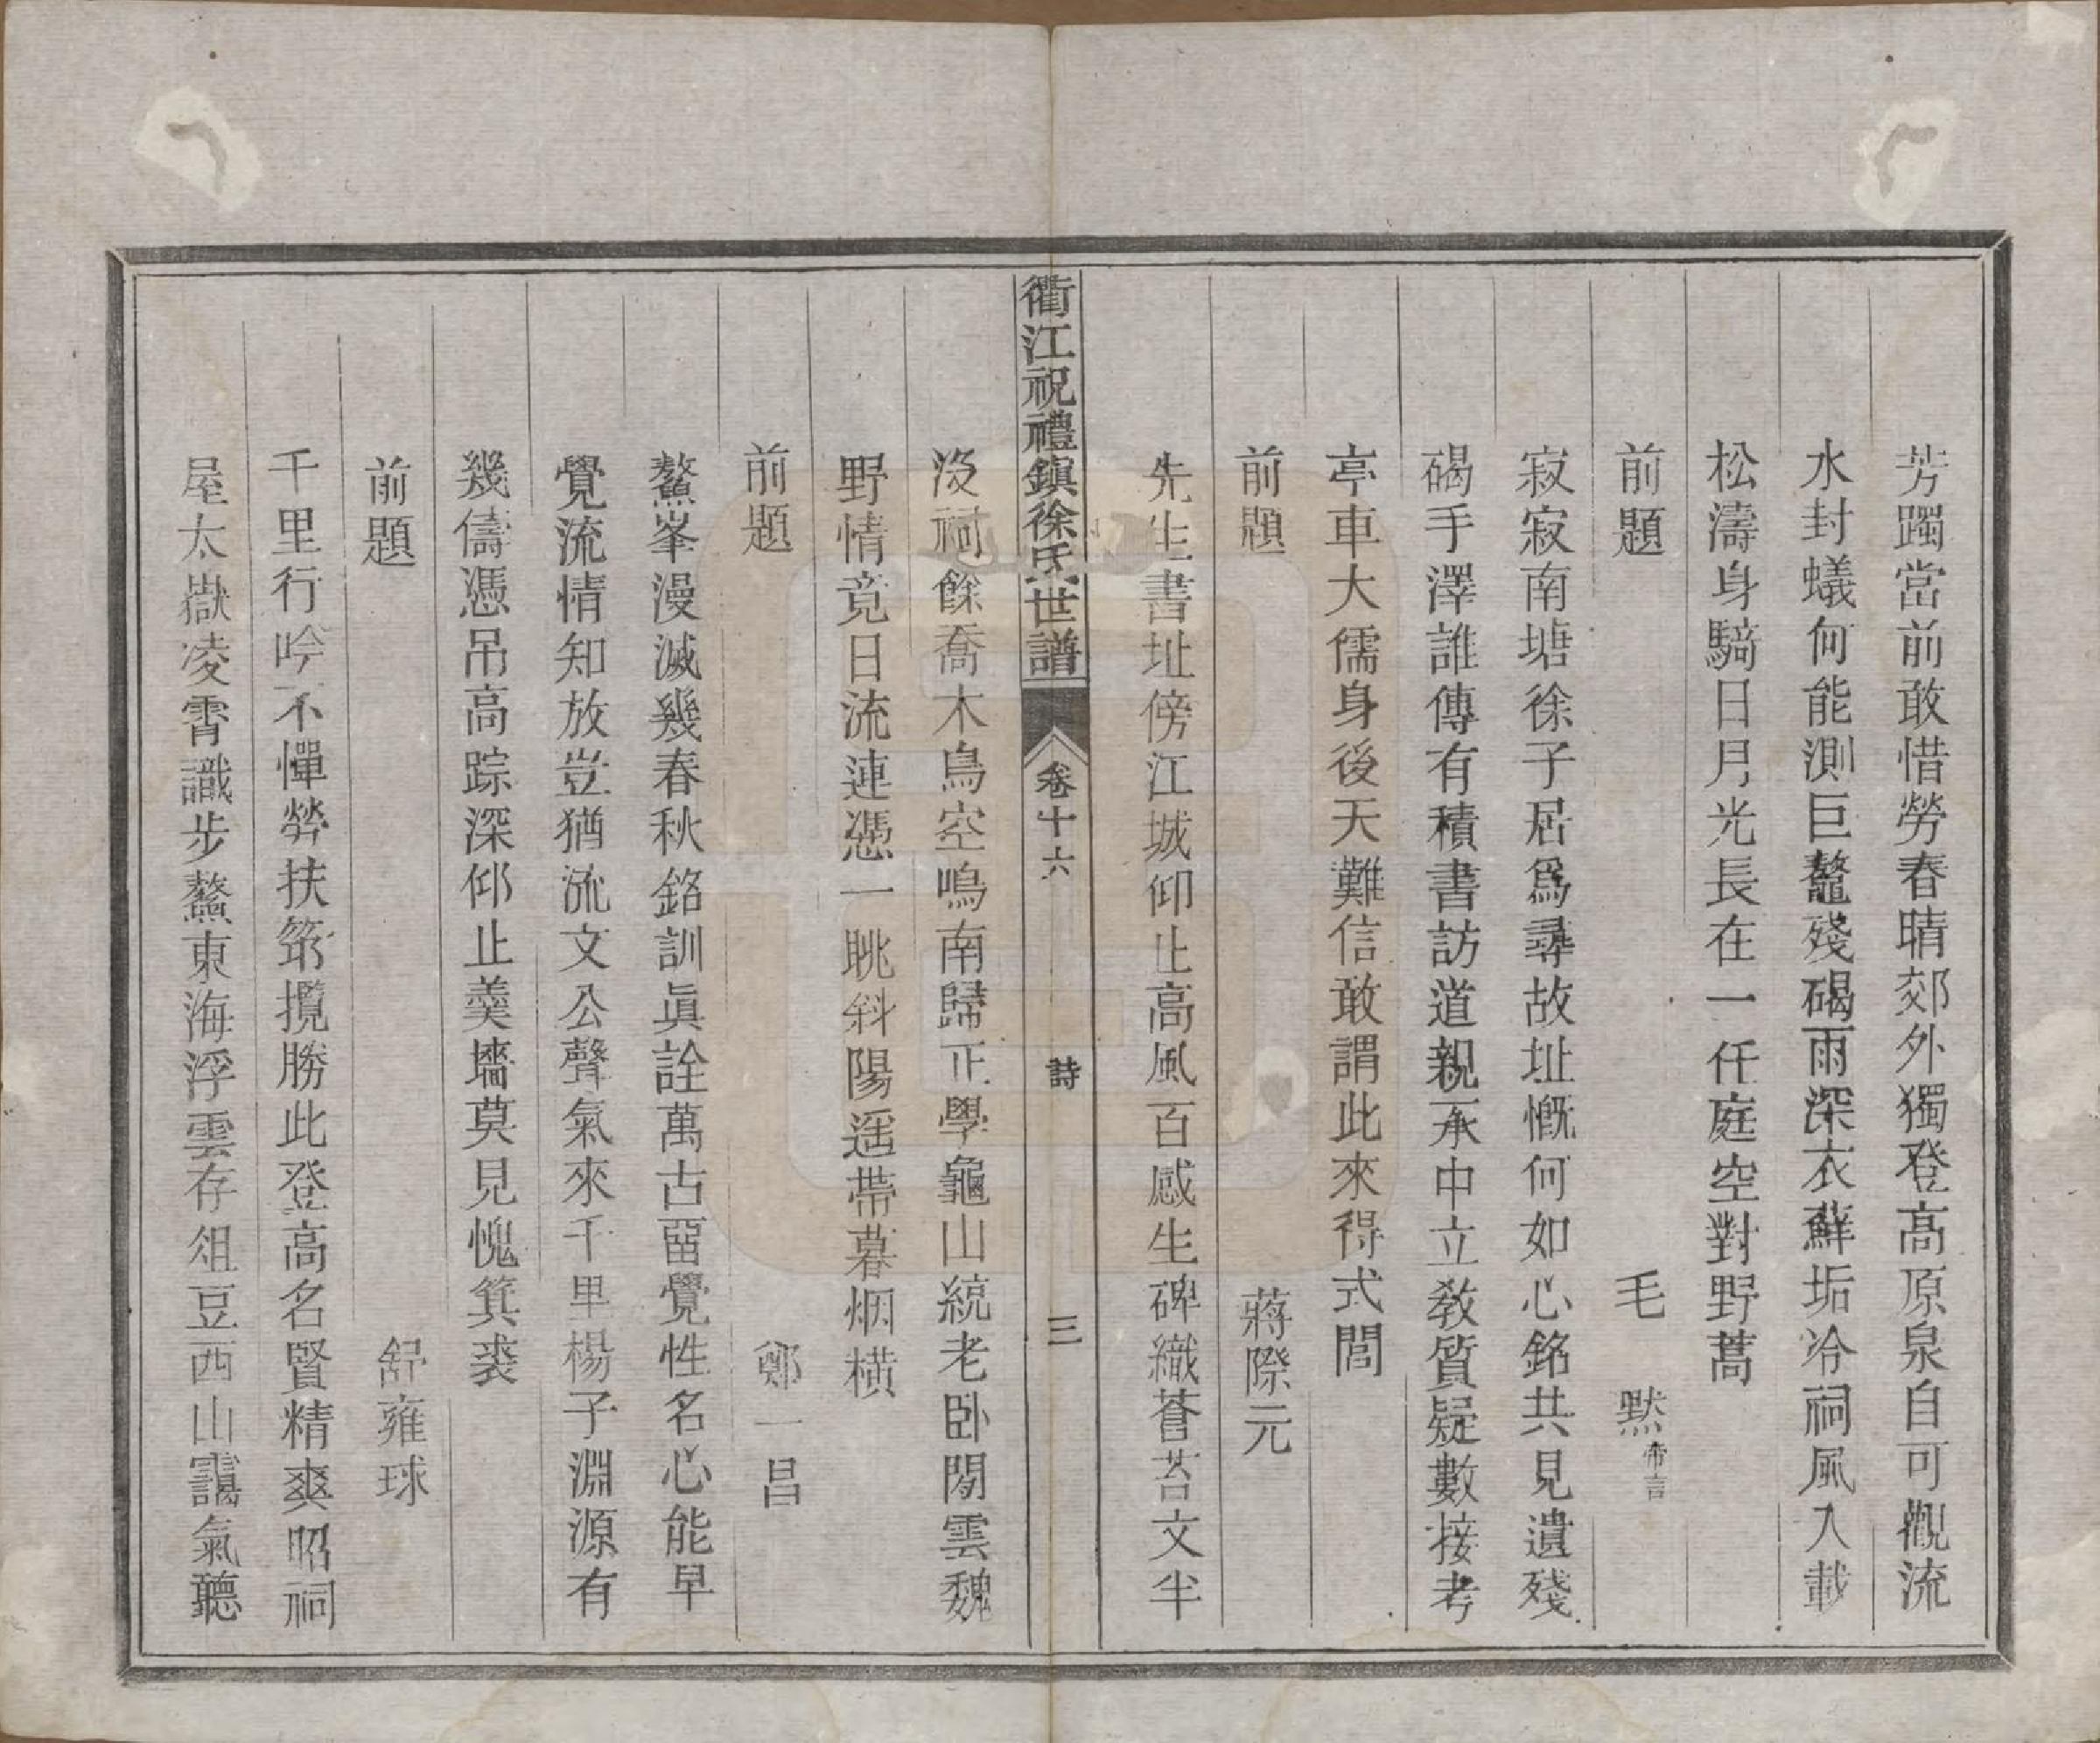 芳躅當前敢惜勞春晴郊外獨登高原泉自可觀流
水封蟻何能測巨鼇殘碣雨深衣蘚垢冷祠風入載
松濤身騎日月光長在一任庭空對野蒿
前題　毛　默帝言
寂寂南塘徐子居爲尋故址慨何如心銘共見遺殘
碣手澤誰傳有積書訪道親承中立教質疑數接考
亭車大儒身後天難信敢謂此來得式閭
前題　蔣際元
先生書址傍江城仰止高風百感生碑織蒼苔文半
沒祠餘喬木鳥空鳴南歸正學龜山統老卧閒雲魏
野情竟日流連憑一眺斜陽遥帶暮烟橫
前題　鄭一昌
鰲峯漫滅幾春秋銘訓眞詮萬古畱覺性名心能早
覺流情知放豈猶流文公聲氣來千里楊子淵源有
幾儔憑吊高踪深仰止羹墻莫見愧箕裘
前題　舒雍球
千里行吟不憚勞扶筇攬勝此登高名賢精爽昭祠
屋太嶽凌霄識步鰲東海浮雲存俎豆西山靄氣聽
衢江祝禮鎮徐氏世譜　卷十六　詩　三